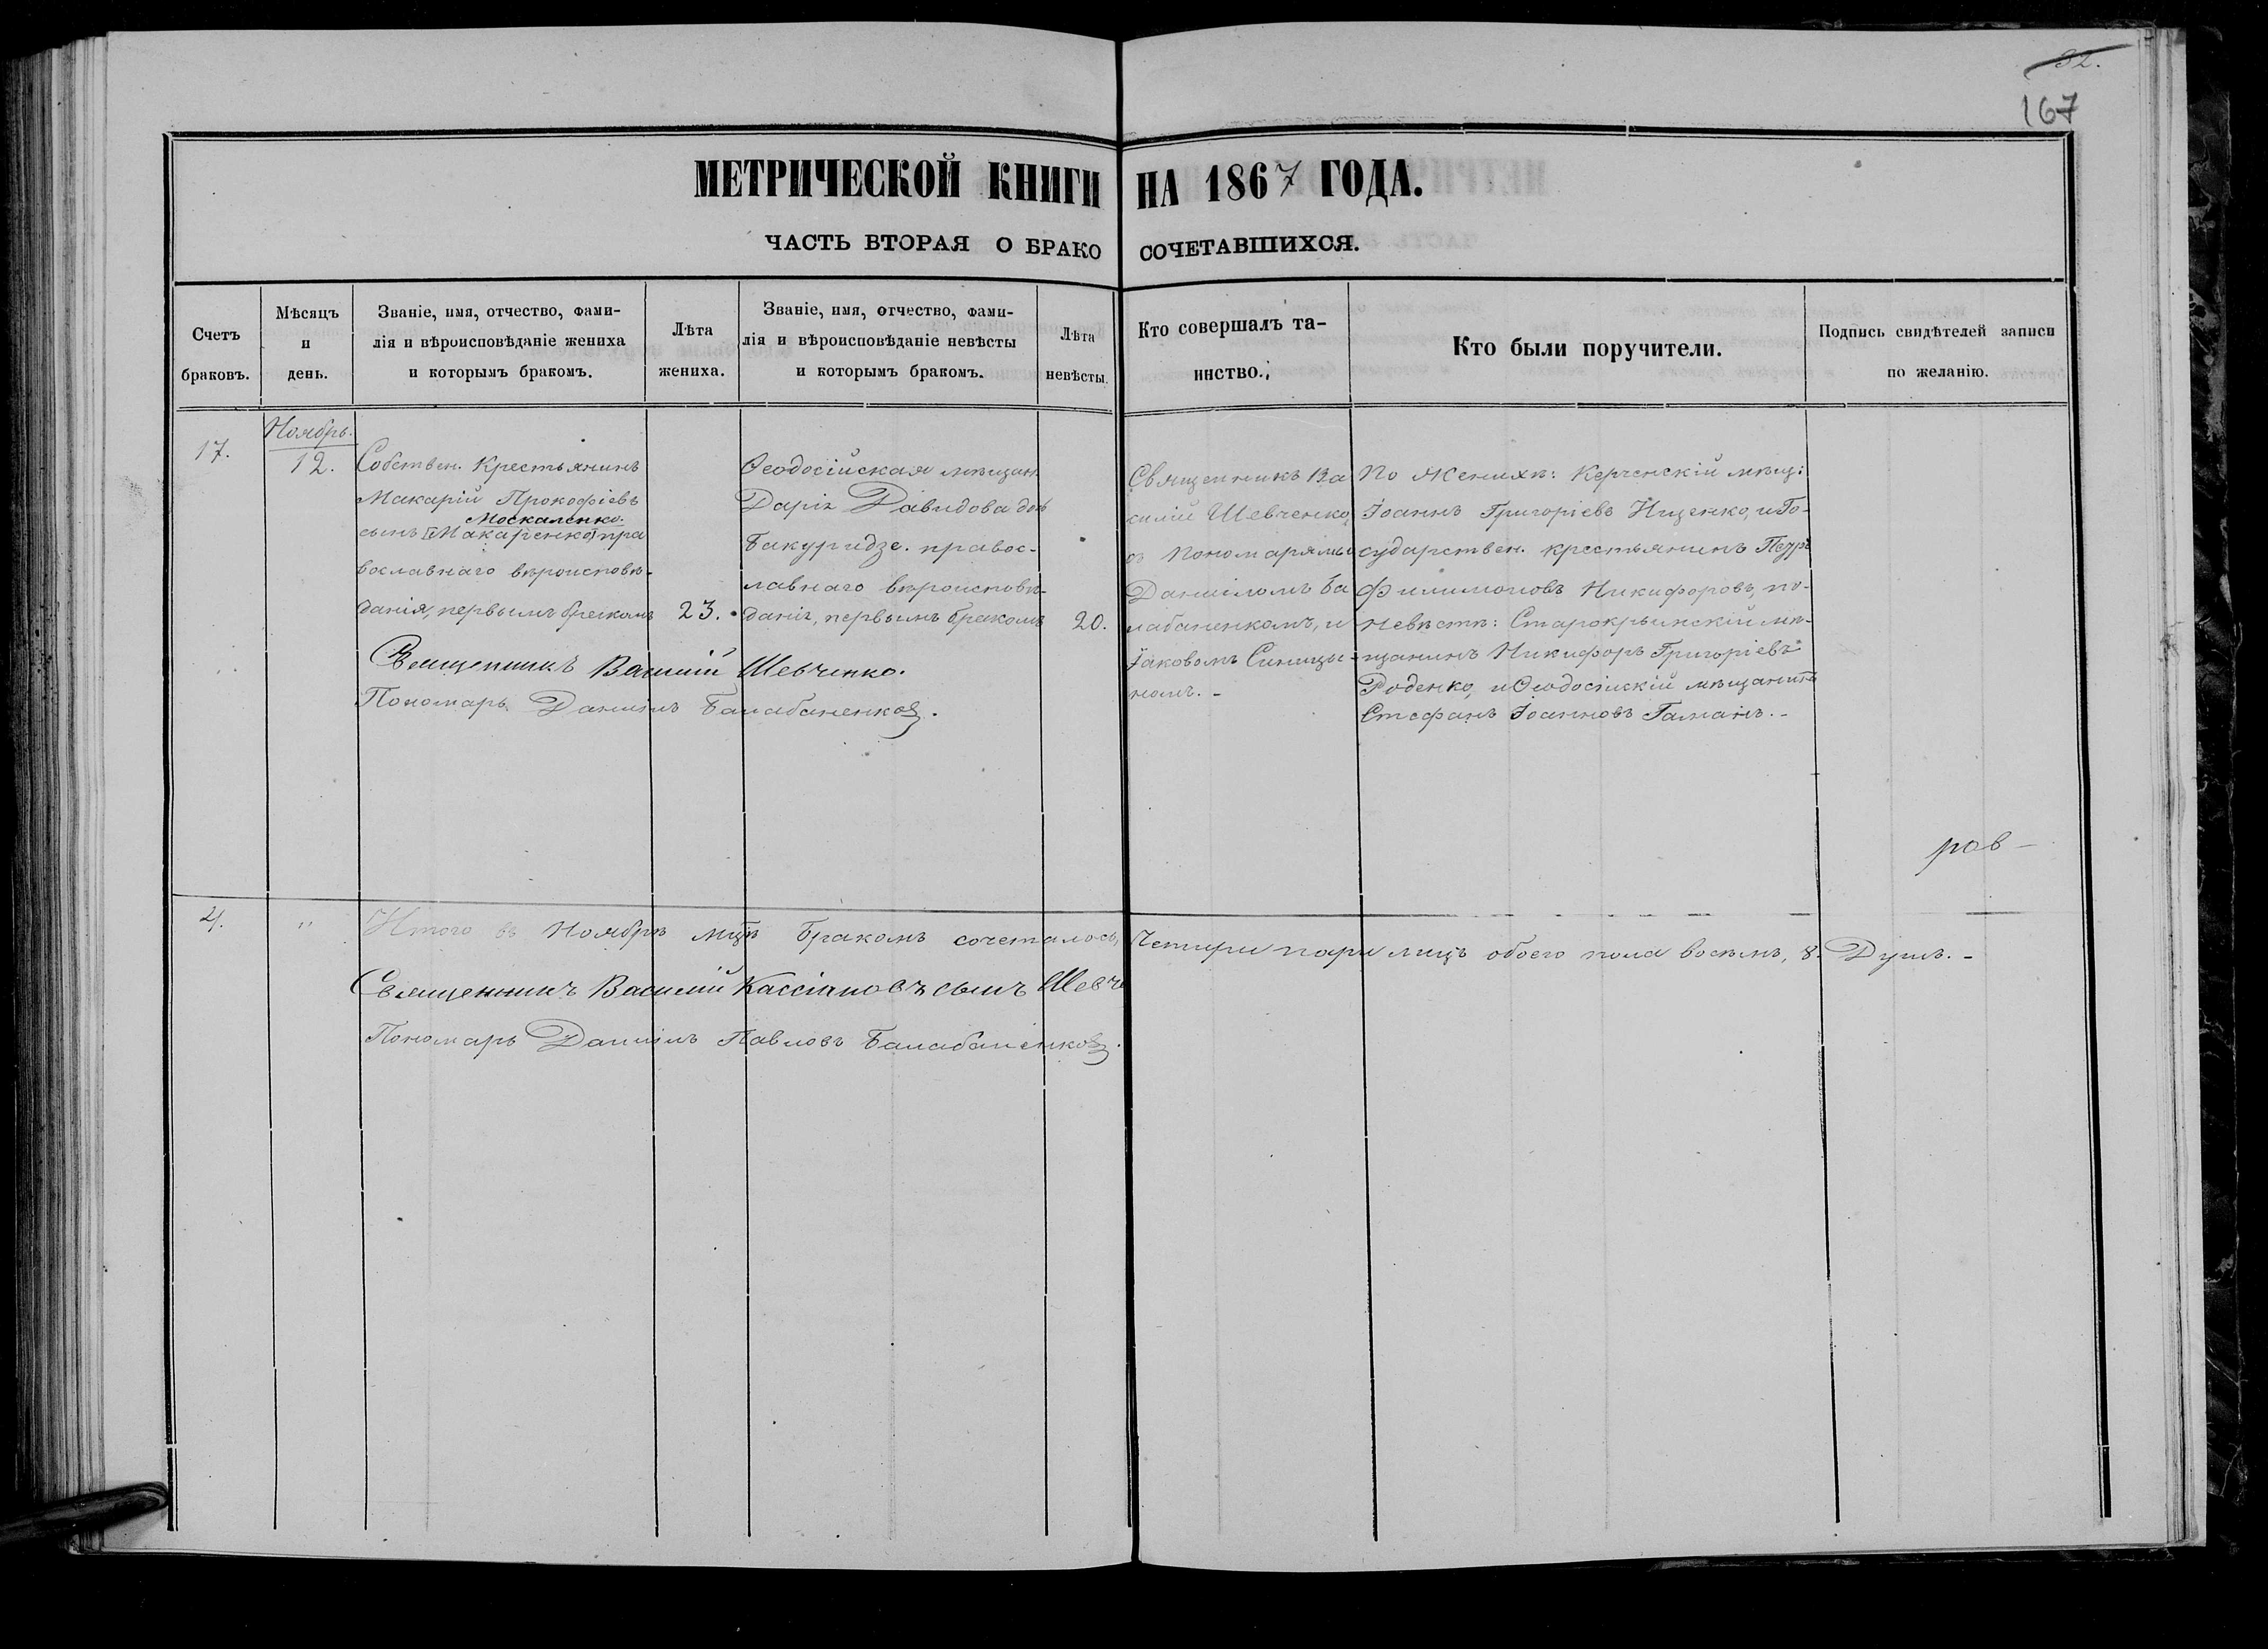 32.
167
МЕТРИЧЕСКОЙ КНИГИ НА 1867 ГОДА.
ЧАСТЬ ВТОРАЯ О БРАКОСОЧЕТАВШИХСЯ.
Счетъ
браковъ.
Мѣсяцъ
и
день.
Званіе, имя, отчество, фами-
лія и вѣроисповѣданіе жениха
и которымъ бракомъ.
Лѣта
жениха.
Званіе, имя, отчество, фами-
лія и вѣроисповѣданіе невѣсты
и которымъ бракомъ.
Лѣта
невѣсты.
Кто совершалъ та-
инство.
Кто были поручители.
Подпись свидѣтелей записи
по желанію.
17.
Ноябрь.
12.
Собствен. Крестьянинъ
Макарій Прокофіевъ
Москаленко.
сынъ (Макаренко) пра
вославнаго вѣроисповѣ-
данія, первымъ бракомъ
23.
Ѳеодосійская мѣщан.
Дарія Давидова дочь
Бакуридзе. правос-
лавнаго вѣроисповѣ-
данія, первымъ бракомъ
20.
Священникъ Ва
силій Шевченко,
съ пономарями
Даніиломъ Ба
лабаненкомъ, и
Іаковомъ Синицы-
номъ. -
По Женихѣ: Керченскій мѣщ:
Іоаннъ Григоріевъ Ищенко, и Го-
сударствен. крестьянинъ Петръ
Филимоновъ Никифоровъ, по-
Невѣстѣ: Старокрымскій мѣ-
щанинъ Никифоръ Григоріевъ
Роденко, и Ѳеодосійскій мѣщанинъ
Стефанъ Іоанновъ Гаманъ. -
Священникъ Василій Шевченко.
Пономарь Даніилъ Балабаненковъ.
рав -
4.
"
Итого въ Ноябрѣ мцѣ бракомъ сочеталось, Четыри пары лицъ обоего пола восемь, 8. Душъ. -
Священникъ Василій Кассіановъ сынъ Шевч
Пономарь Даніилъ Павловъ Балабаненковъ.